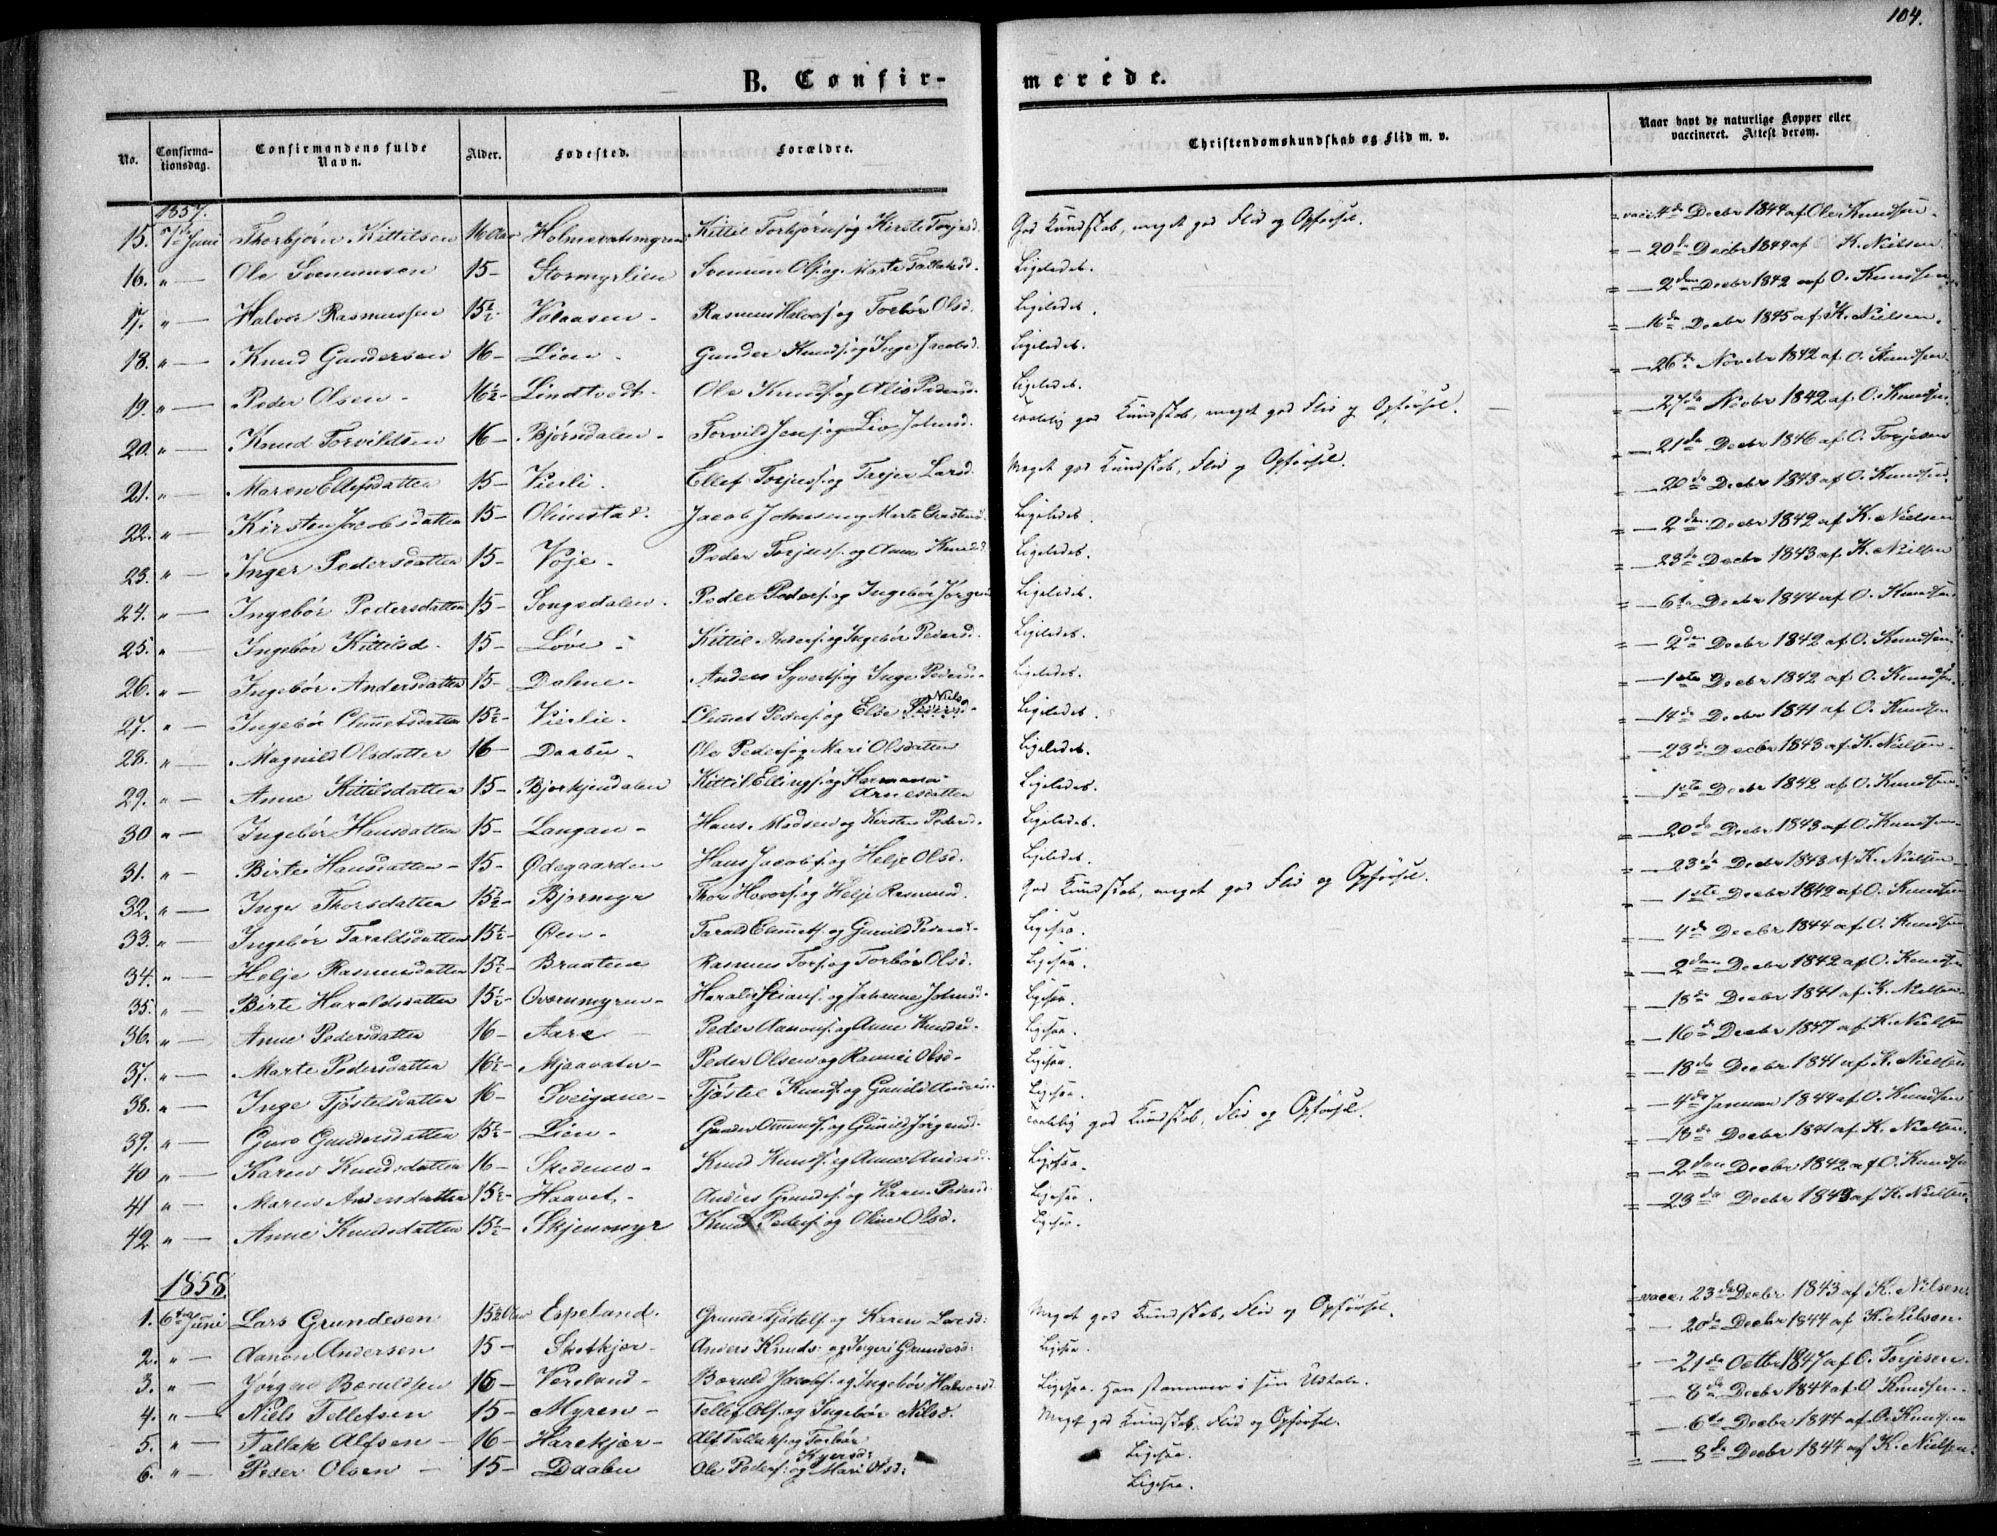 104.
B. Confirmerede.
No. Confirmationsdag. Confirmandens fulde Navn. Alder. Fødested. Forældre. Christendomskundskab og Flid m. v. Naar havt de naturlige Kopper eller vaccineret. Attest derom.
1857.
15. 7de Juni Thorbjørn Kittilsen 16 Aar Holmsvatsmyren Kittil Torbjørns. og Kirsti Torjesd. God Kundskab, meget god Flid og Opførsel. vacc. 4de Decbr 1844 af Ole Knudsen.
16. " — Ole Svenumsen 15 - Stormyrlien Svenum Ols. og Marte Tallaksd. Ligeledes. = — 20de Decbr 1844 af K. Nielsen
17. " — Halvor Rasmussen 15½ - Valaasen - Rasmus Halvors. og Torbør Olsd. Ligeledes. = — 2den Decbr 1842 af O. Knudsen
18. " — Knud Gundersen 16 - Lien - Gunder Knuds. og Inge Jacobsd. Ligeledes. = — 16de Decbr 1845 af K. Nielsen.
19. " — Peder Olsen - 16½ - Lindtvedt. Ole Knuds. og Alis Pedersd. Ligeledes. = — 26de Novbr 1842 af O. Knudsen
20. " — Knud Torvildsen 16 - Bjørndalen - Torvild Jens. og Liv Johnsd. Taalelig god Kundskab, meget god Flid og Opførsel. = — 27de Novbr 1842 af O. Knudsen
21. " — Maren Ellefsdatter 15 - Vierli. Ellef Torjuss. og Tarjer Larsd. Meget god Kundskab, Flid og Opførsel. = — 21de Decbr 1846 af O. Torjesen
22. " — Kirsten Jacobsdatter 15 - Olimstad. Jacob Johnsen og Marte Ligeledes. = — 20de Decbr 1843 af O. Knudsen
23. " — Inger Pedersdatter 15 - Voje - Peder Torjuss. og Anne Knudsd. Ligeledes. = — 2den Decbr 1842 af K. Nielsen
24. " — Ingebør Pedersdatter 15 - Songedalen. Peder Peders. og Ingebør Jørgensd. Ligeledes. = — 23de Decbr 1843 af K. Nielsen
25. " — Ingebør Kittilsd. 15 - Løve - Kittil Anders. og Ingebør Pedersd. Ligeledes. = — 6te Decbr 1844 af O. Knudsen
26. " — Ingebør Andersdatter 15 - Dalene - Anders Syverts. og Inge Pedersd. Ligeledes. = — 2den Decbr 1842 af O. Knudsen
27. " — Ingebør Clemetsdatter 15½ - Vierlie - Clemet Peders. og Else Pedersd. Niels Ligeledes. = — 1ste Decbr 1842 af O. Knudsen
28. " — Magnild Olsdatter 16 - Daabu - Ole Peders. og Mari Olsdatter Ligeledes. = — 14de Decbr 1841 af O. Knudsen
29. " — Anne Kittilsdatter 15 - Bjorkjendalen Kittil Ellings. og Hermana Arnesdatter Ligeledes. = — 23de Decbr 1843 af K. Nielsen
30 " — Ingebør Hansdatter 15 - Langan - Hans Madsen og Kirsten Pedersd. Ligeledes. = — 1ste Decbr 1842 af O. Knudsen
31. " — Birte Hansdatter - 15 - Ødegaarden Hans Jacobs. og Helje Olsd. Ligeledes. = — 20de Decbr 1843 af O. Knudsen
32. " — Inge Thorsdatter 15½ - Bjørmyr Thor Havors. og Helje Rasmusd. God Kundskab, meget god Flid og Opførsel. = — 23de Decbr 1843 af K. Nielsen
33. " — Ingebør Taraldsdatter 15½ - Øen - Tarald Clemets. og Gunild Pedersd. Ligesaa. = — 1ste Decbr 1842 af O. Knudsen
34. " — Helje Rasmusdatter 15½ - Braaten Rasmus Tors. og Torbør Olsd. Ligesaa. = — 4de Decbr 1844 af O. Knudsen
35. " — Birte Haraldsdatter 15½ - Overnmyren - Harald Stians. og Johanne Johnsd. Ligesaa. = — 2den Decbr 1842 af O. Knudsen
36. " — Anne Pedersdatter 16 - Aare Peder Aanons. og Anne Knudsd. Ligesaa. = — 18de Decbr 1841 af K. Nielsen
37. " — Marte Pedersdatter 16½ - Mjaavatn - Peder Olsen og Rannei Olsd. Ligesaa. = — 16de Decbr 1847 af K. Nielsen
38. " — Inge Tjøstelsdatter 16 - Sveigane - Tjøstel Knuds. og Gunild Ligesaa. = — 18de Decbr 1841 af K. Nielsen
39. " — Guro Gundersdatter 15½ - Lien - Gunder Omunds. og Gunild Jørgensd. Taalelig god Kundskab, Flid og Opførsel. = — 4de Januar 1844 af O. Knudsen
40 " — Karen Knudsdatter 16 - Skedsmo - Knud Knuds. og Anne Andersd. Ligesaa. = — 18de Decbr 1841 af K. Nielsen.
41 " — Maren Andersdatter 15½ - Haavet - Anders Grundes. og Karen Pedersd. Ligesaa. = — 2den Decbr 1842 af O. Knudsen
42 " — Anne Knudsdatter 15½ - Skjenmyr Knud Peders. og Oline Olsd. Ligesaa. = — 23de Decbr 1843 af K. Nielsen.
1858
1. 6te Juni Lars Grundesen 15½ Aar Espeland. Grunde Tjøstelf. og Karen Larsd: Meget god Kundskab, Flid og Opførsel. = vacc. 23de Decbr 1843 af K. Nilsen.
2. " — Aanon Andersen 15 - Skotkjær - Anders Knuds: og Ingeri Grundesd: Ligesaa. 20de Decbr 1844 af K. Nilsen.
3. " — Jørgen Bæruldsen 16 - Væreland - Bæruld Jacobs. og Ingebør Halvorsd. Ligesaa. Han stammer i sin Udtale. — 21de Octbr 1847 af O. Torjesen.
4. " — Niels Tellefsen 15 - Myren - Tellef Ols. og Ingebør Nilsd. Meget god Kundskab, Flid og Opførsel. = — 8de Decbr 1844 af O. Knudsen
5. " — Tallak Alfsen - 16 - Harekjær - Alf Tallaks. og Torbør Kyersd: Ligesaa. — 6te Decbr 1844 af O. Knudsen
6. " — Peder Olsen - 15 - Daabu Ole Peders: og Mari Olsd: Ligesaa. — 8de Decbr 1844 af K. Nielsen